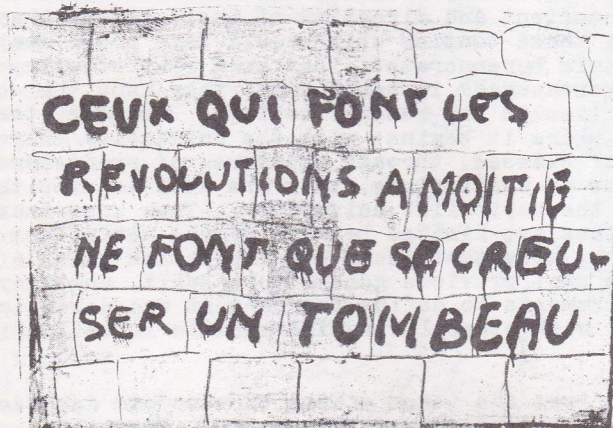 CEUX QUI FONT LES
REVOLUTIONS A MOITIE
NE FONT QUE SE CREU-
SER UN TOMBEAU